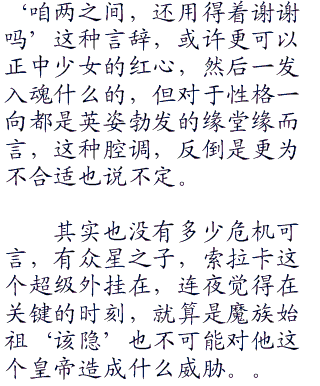 ‘咱两之间，还用得着谢谢
吗’这种言辞，或许更可以
正中少女的红心，然后一发
入魂什么的，但对于性格一
向都是英姿勃发的缘堂缘而
言，这种腔调，反倒是更为
不合适也说不定。
其实也没有多少危机可
言，有众星之子，索拉卡这
个超级外挂在，连夜觉得在
关键的时刻，就算是魔族始
祖‘该隐’也不可能对他这
个皇帝造成什么威胁。。